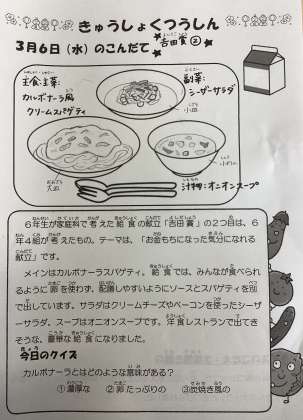 きゅうしょくつうしん
3月6日（水）のこんだて 吉田賞②
主食・主菜：
カルボナーラ風
クリームスパゲティ
副菜：
シーザーサラダ
小皿
大皿
汁物：オニオンスープ
6年生が家庭科で考えた給食の献立「吉田賞」の2つ目は、6
年4組が考えたもの。テーマは、「お金もちになった気分になれる
献立」です。
メインはカルボナーラスパゲティ。給食では、みんなが食べられ
るように卵を使わず、配膳しやすいようにソースとスパゲティを別
で出しています。サラダはクリームチーズやベーコンを使ったシーザ
ーサラダ、スープはオニオンスープです。洋食レストランで出てき
そうな、豪華な給食になりました。
今日のクイズ
カルボナーラとはどのような意味がある？
①濃厚な ②卵たっぷりの ③炭焼き風の